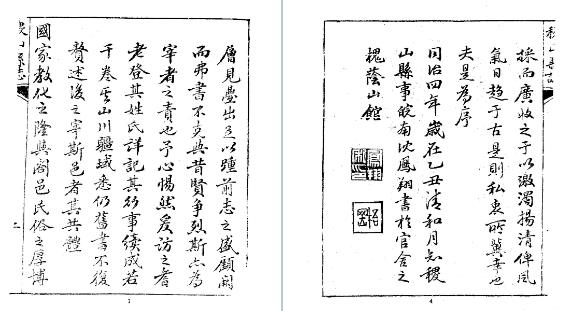 層見疊出足以踵前志之盛顧闕
而弗書不克與昔賢爭烈斯亦為
宰者之責也予心惕然爰訪之耆
老登其姓氏詳記其行事續成若
干卷至山川疆域悉仍舊書不復
贅述後之宰斯邑者其共體
國家教化之隆與闔邑民俗之厚博
二
3
採而廣收之于以激濁揚清俾風
氣日趨于古是則私衷所冀幸也
夫是為序
同治四年歲在乙丑清和月知稷
山縣事皖南沈鳳翔書於官舍之
槐蔭山館
4